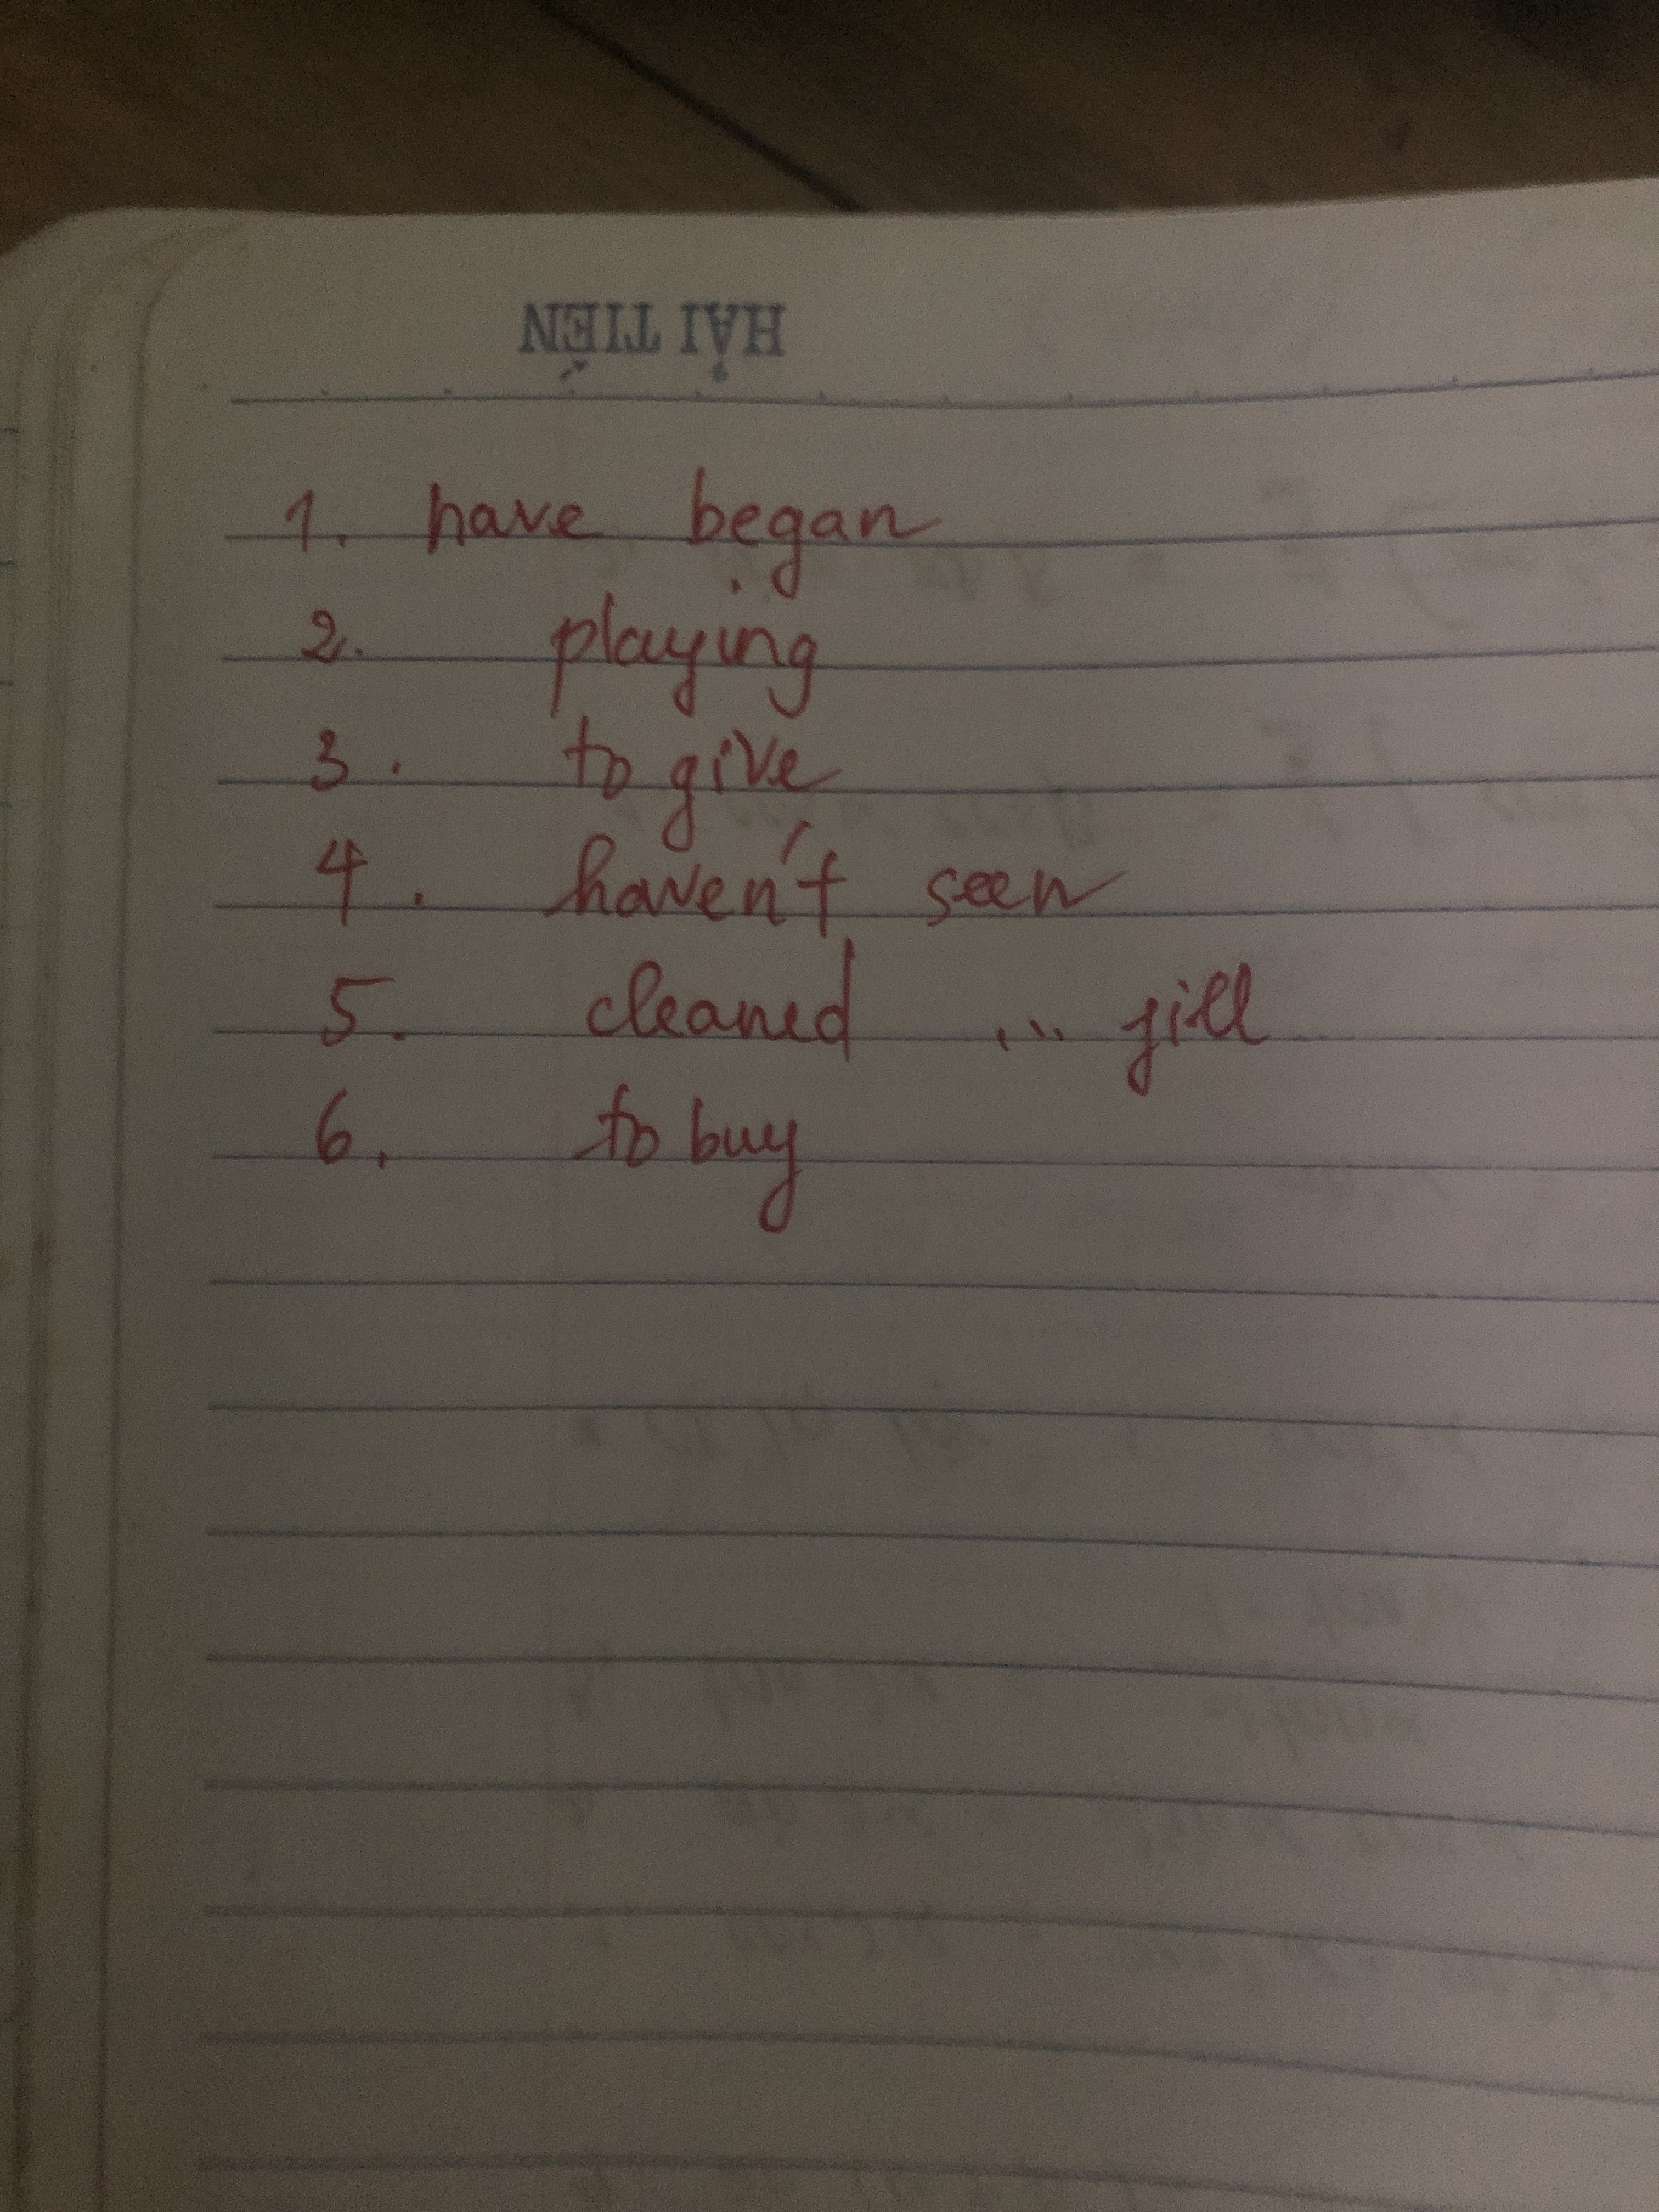 HẢI TIẾN
1. have began
2. playing
3. to give
4. haven't seen
5. cleaned ... fill
6. to buy